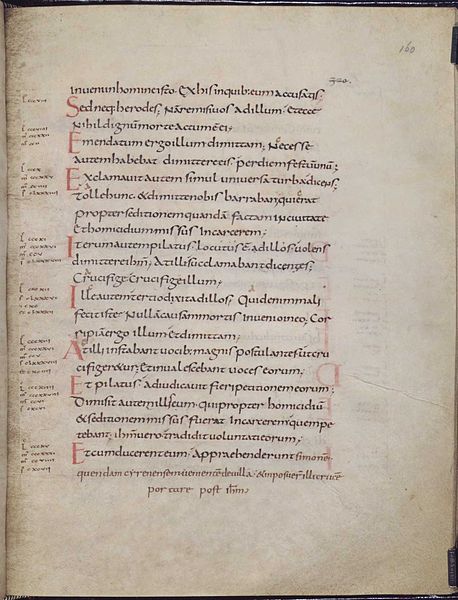 160
320.
invenin homine isto. Ex his in quib; eum accusatis;
Sed neq; herodes, Nam remisi vos ad illum. Et ecce
Nihil dignū morte actum ē ei;
Emendatum ergo illum dimittam; Necesse
autem habebat dimittere eis per diem festū unū;
Exclamavit autem simul universa turba dicens;
Tolle hunc, & dimitte nobis barraban; qui erat
propter seditionem quandā factam in civitate
et homicidiū missus in carcerem;
Iterum autem pilatus locutus ē ad illos volens
dimittere ihm; At illi succlamabant dicentes;
Crucifige crucifige illum;
Ille autem tertio dixit ad illos; Quid enim mali
fecit iste. Nullā causam mortis invenio in eo; Cor
ripiā ergo illum et dimittam;
At illi instabant vocib; magnis postulantes ut cru
cifiger&ur; Et invalescebant voces eorum;
Et pilatus adiudicavit fieri petitionem eorum;
Dimisit autem illis eum qui propter homicidiū
& seditionem missus fuerat in carcerem quem pe
tebant; ihm vero tradidit voluntati eorum;
Et cum ducerent eum. Apprehenderunt simone
quendam cyrenensem venientē de villa. & imposuer illi crucē
portare post ihm;